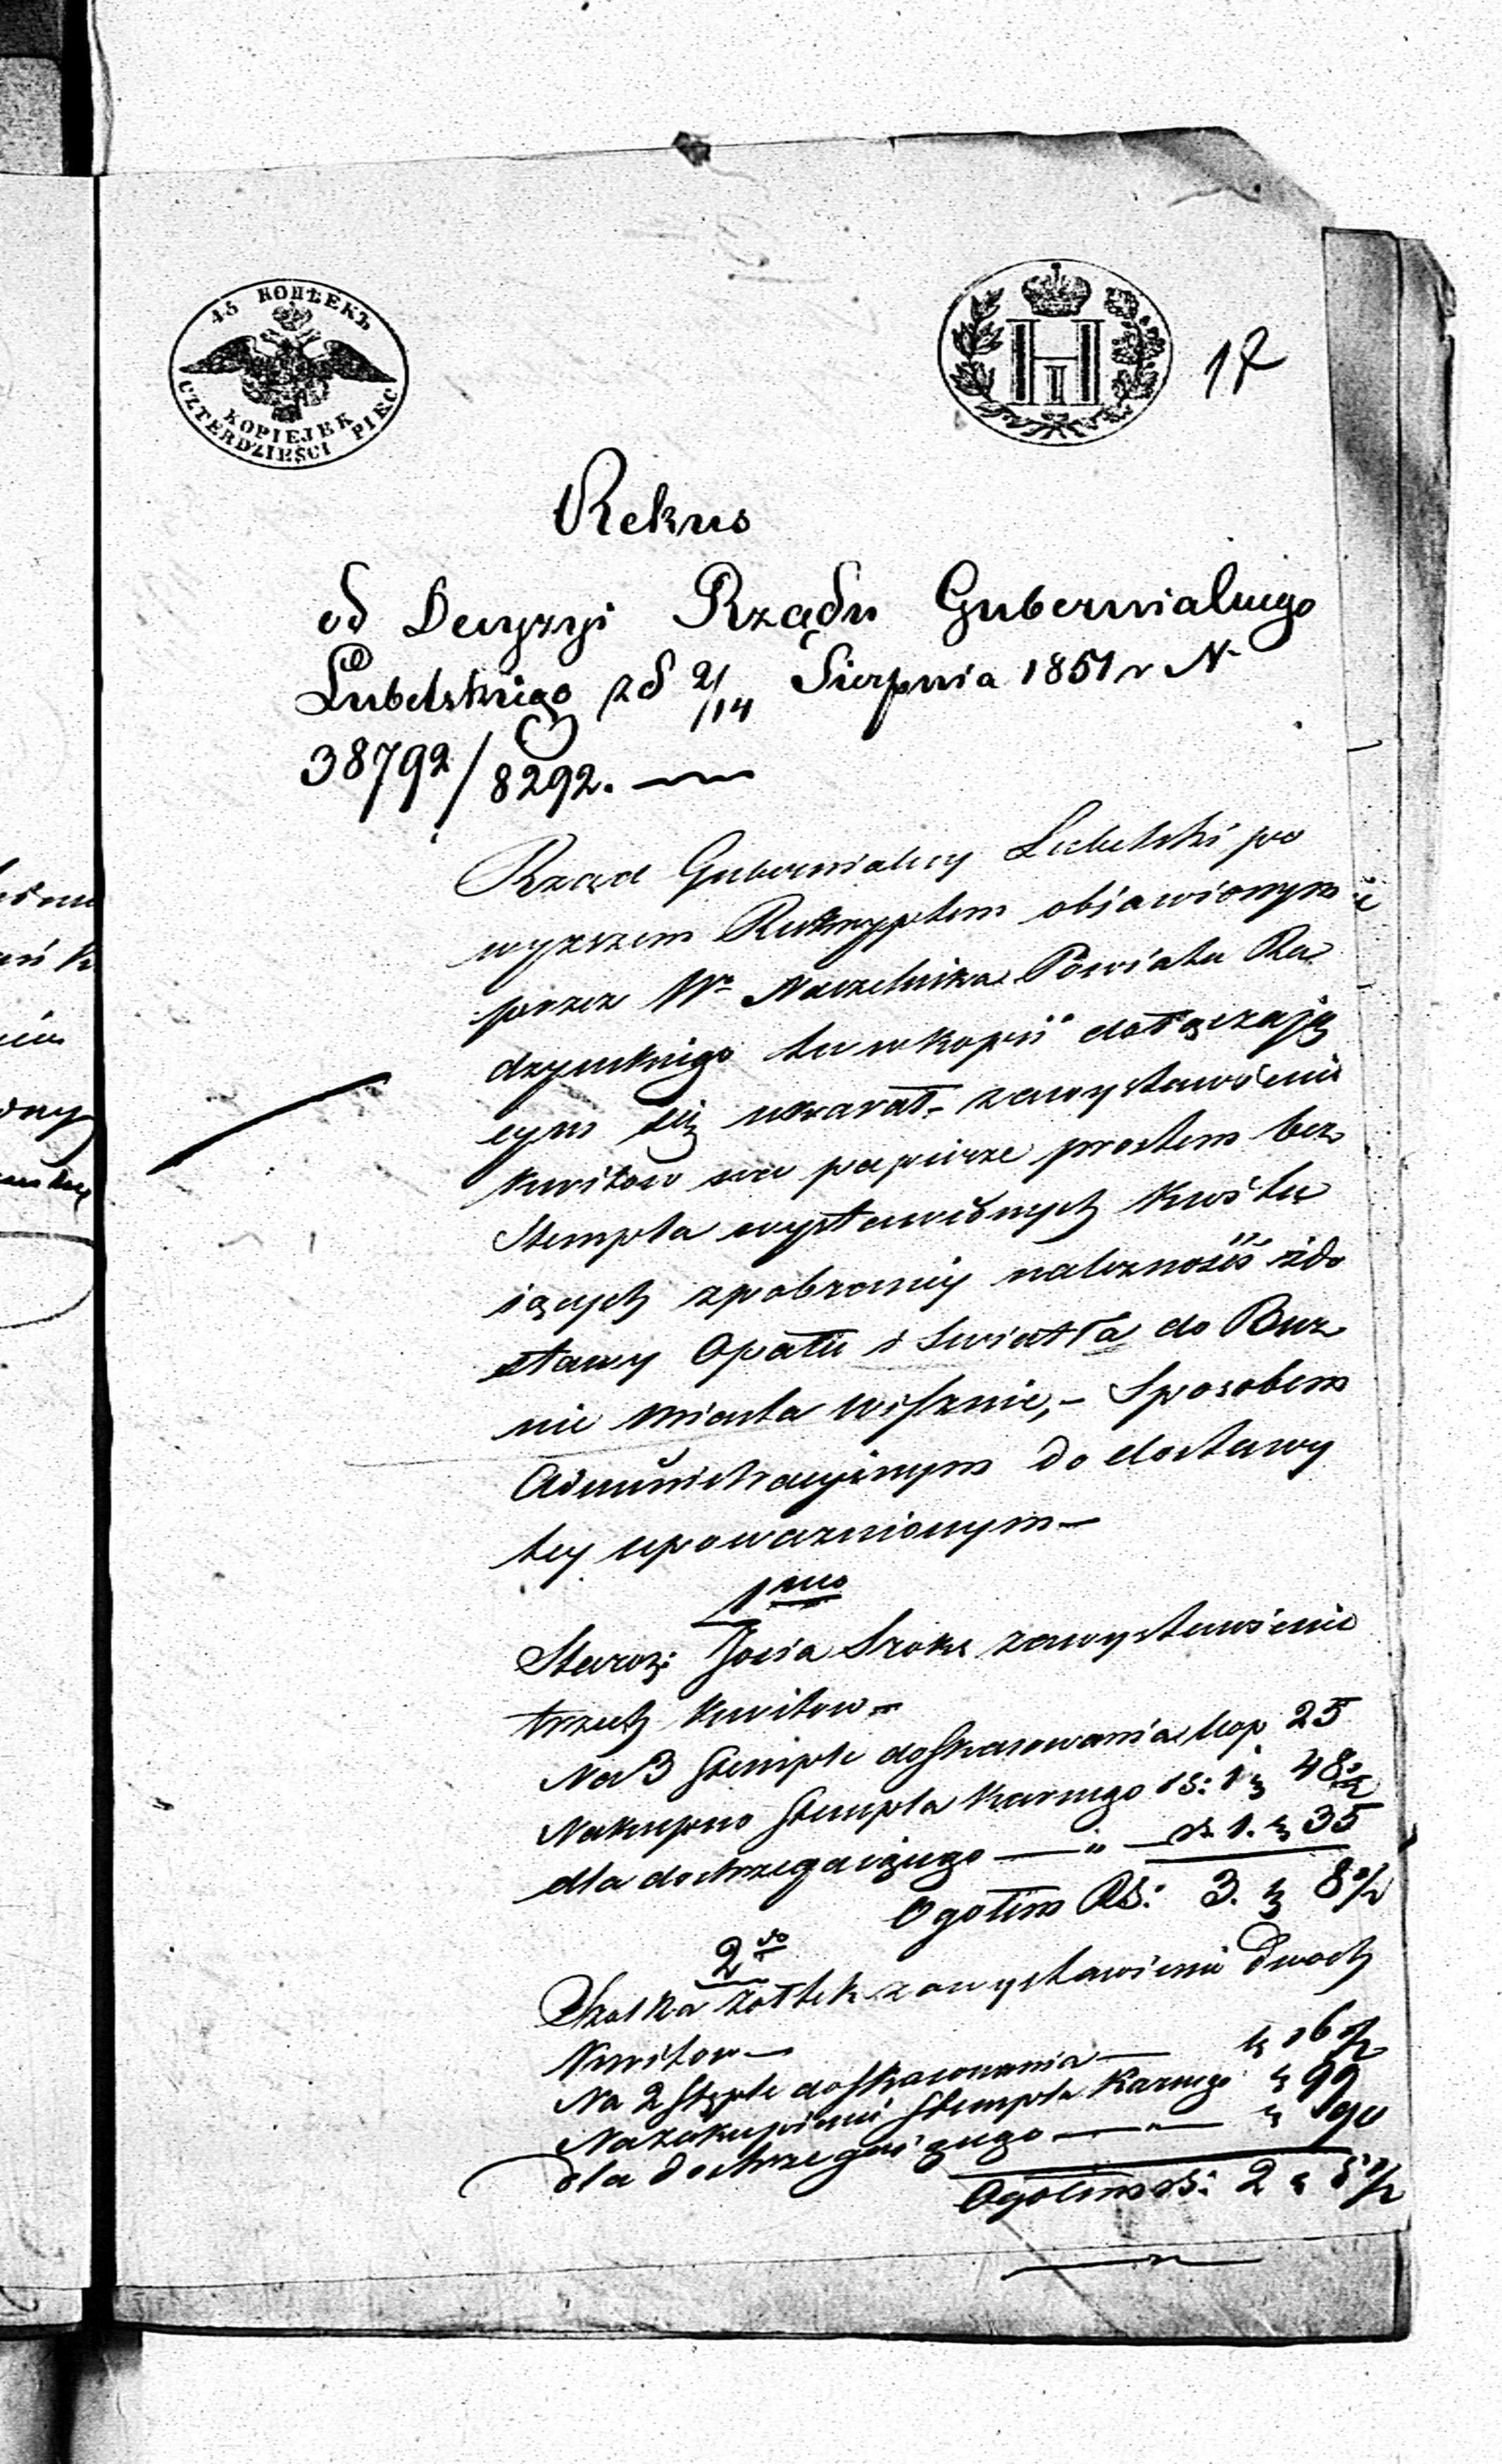 45 КОПѢЕКЪ
KOPIEJEK
CZTERDZIEŚCI PIĘC
H I
17
Rekurs
od Decyzyi Rządu Gubernialnego
Lubelskiego z d 2/14 Sierpnia 1851 r N
38792/8292.
Rząd Gubernialny Lubelski po
wyższem Reskryptem obiawionym
przez Wº Naczelnika Powiatu Ra
dzynskiego tu w kopii dołączają
cym się ukarał zawystawienie
kwitow na papierze prostem bez
Stempla wystawionych
zpobraniey należności zdo
stawy Opału i swiatła do Buz
nic miasta Wisznic, – Sposobem
Administracyjnym do dostawy
tey upoważnionym –
1mo
Staroz: Josia Szoks zawystawienie
trzech kwitow –
Na 3 Stemple doskasowania kop 25
Nakupno Stempla karnego rs: 1 k 48 ½
dla dostrzegaiącego — " — rs. 1. k 35
Ogółem RS: 3. k 8 ½
2do
Szolka żołtek zawystawienie dwoch
Kwitow –
Na 2 Stęple doskasowania — k 16 ½
Nazakupienie Stempla Karnego k 99
dla dostrzegaiącego — " — k 90
Ogółem rs: 2 k 5 ½